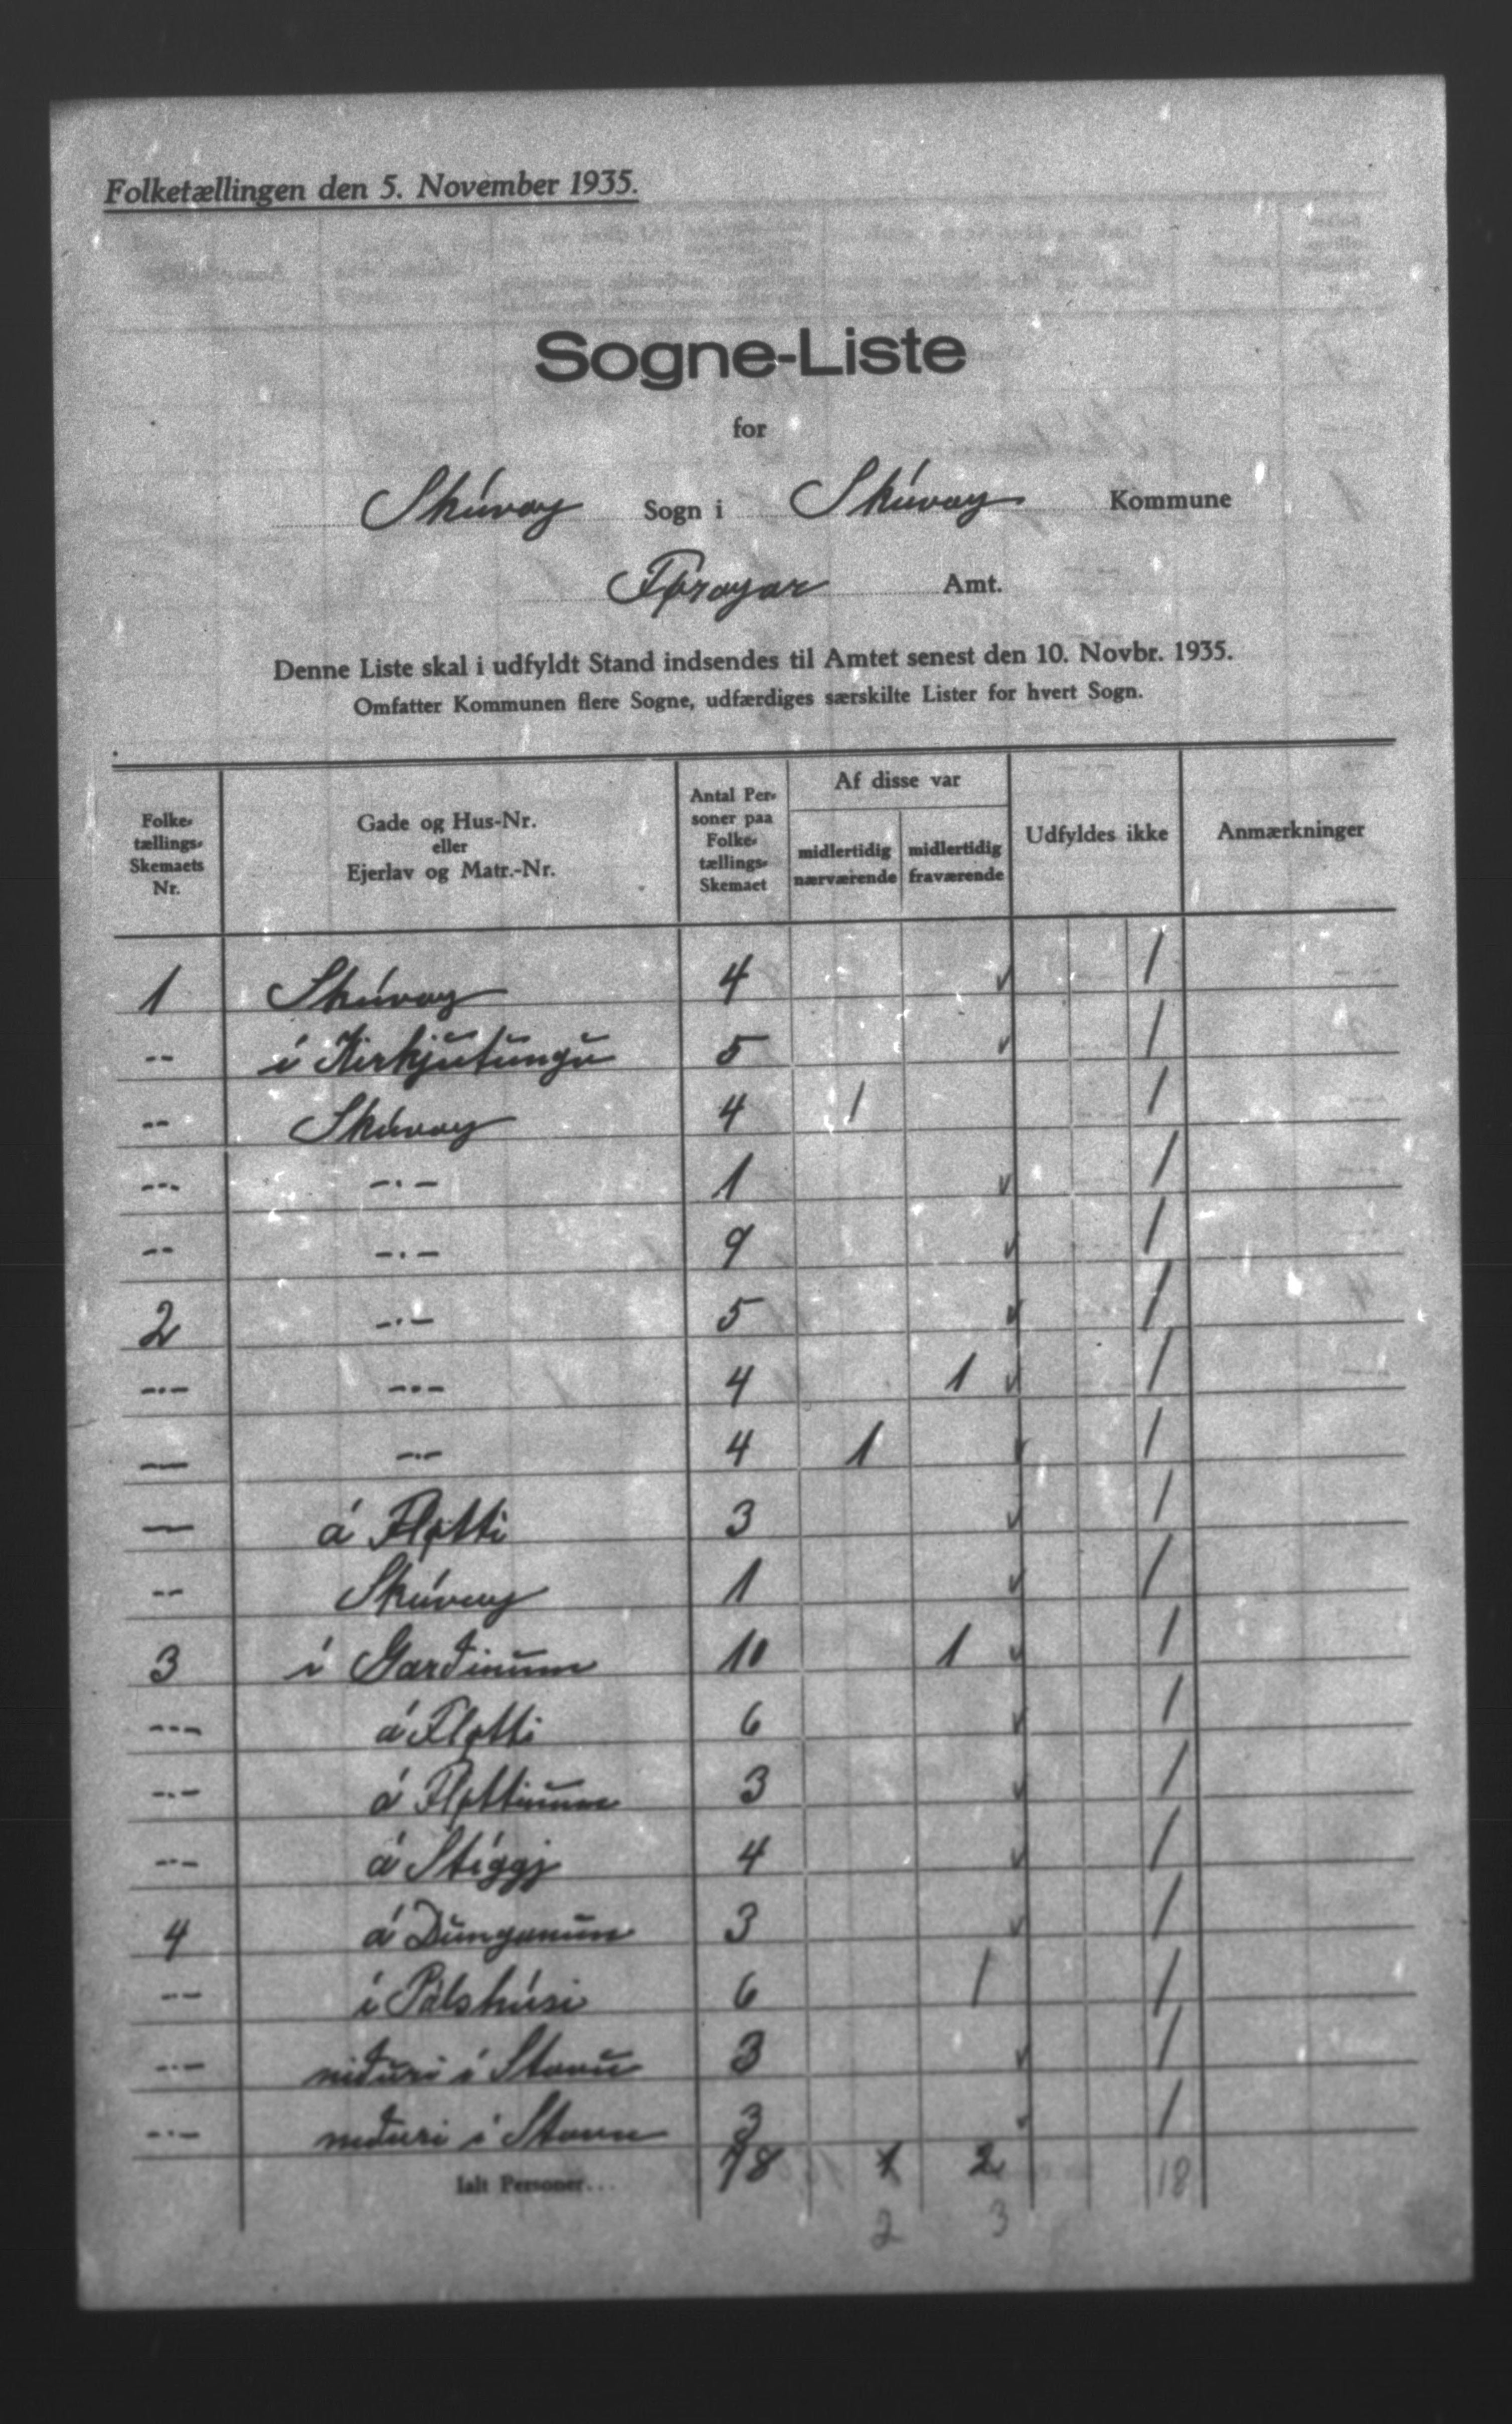 Folketællingen den 5. November 1935.
Sogne-Liste
for
Skúvoy Sogn i Skúvoy Kommune
Føroyar Amt.
Denne Liste skal i udfyldt Stand indsendes til Amtet senest den 10. Novbr. 1935.
Omfatter Kommunen flere Sogne, udfærdiges særskilte Lister for hvert Sogn.
Folketællings-Skemaets Nr. | Gade og Hus-Nr. eller Ejerlav og Matr.-Nr. | Antal Personer paa Folketællings-Skemaet | Af disse var midlertidig nærværende | midlertidig fraværende | Udfyldes ikke | Anmærkninger
1 Skúvoy 4 ✓ /
-- í Kirkjutungu 5 ✓ /
-- Skúvoy 4 1 /
--- -·- 1 ✓ /
-- -·- 9 ✓ /
2 -·- 5 ✓ /
-·- -·- 4 1 ✓ /
— -·- 4 1 ✓ /
— á Fløtti 3 ✓ /
-- Skúvoy 1 ✓ /
3 í Garðinum 10 1 ✓ /
-·- á Fløtti 6 ✓ /
-·- á Fløttinum 3 ✓ /
-·- á Stiggj 4 ✓ /
4 á Dunganum 3 ✓ /
-·- í Pálshúsi 6 1 /
-·- niðuri í Stovu 3 ✓ /
-·- niðuri í Stovu 3 ✓ /
Ialt Personer... 78 1 2 18
2 3